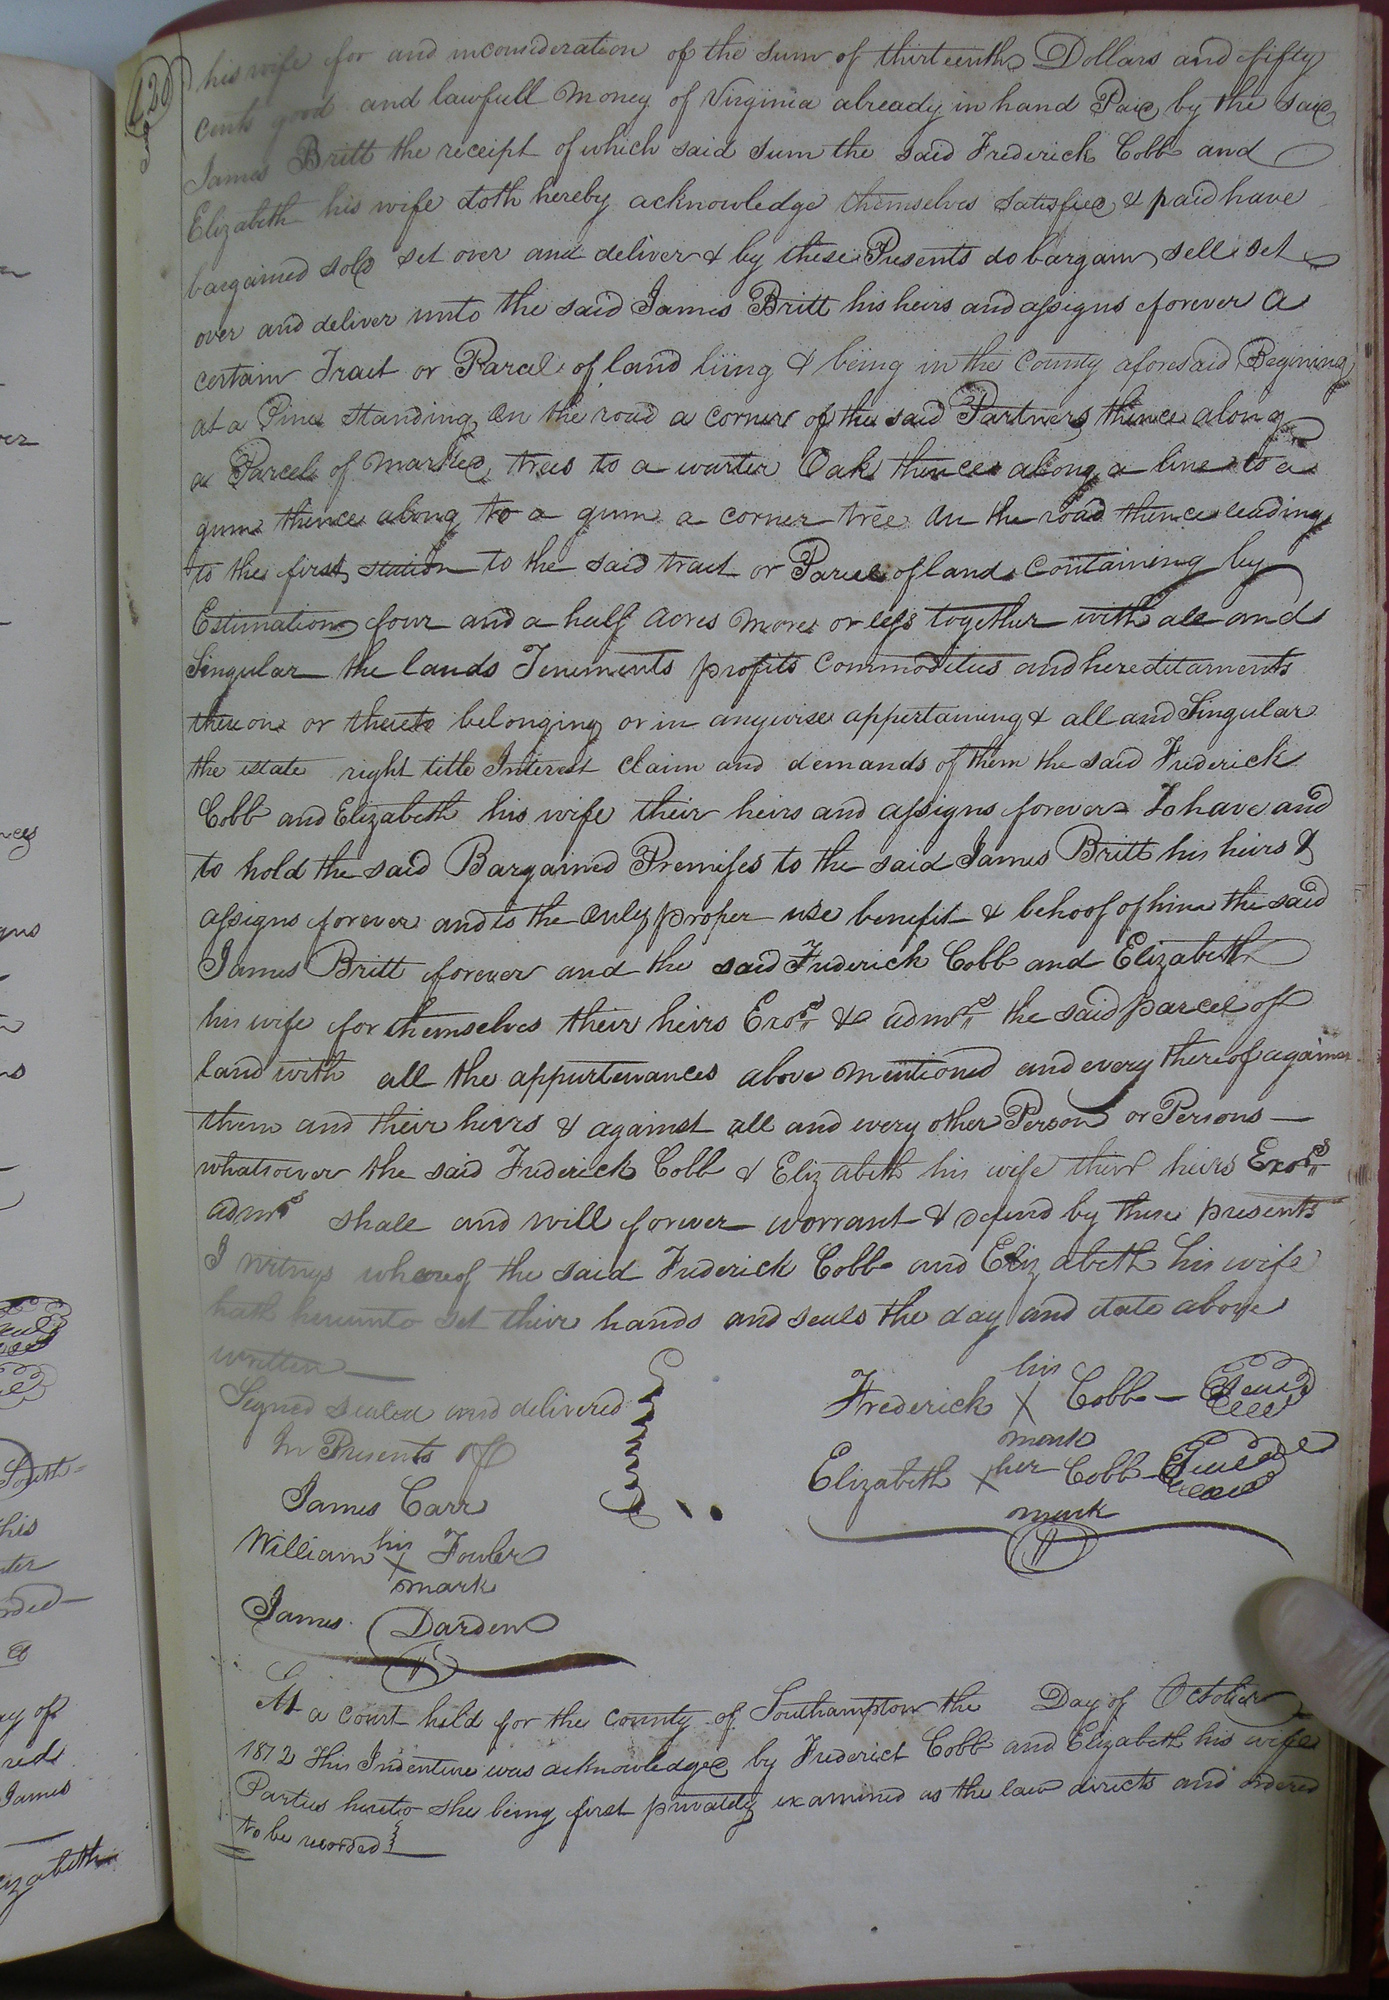 420
his wife for and inconsideration of the sum of thirteenth Dollars and fifty
cents good and lawfull money of Virginia already in hand Paid by the said
James Britt the receipt of which said sum the said Frederick Cobb and
Elizabeth his wife doth hereby acknowledge themselves satisfied & paid have
bargained sold set over and deliver & by these Presents do bargain sell set
over and deliver unto the said James Britt his heirs and assigns forever a
certain Tract or Parcel of land liing & being in the county aforesaid Begining
at a Pine standing on the road a corner of the said Partners thence along
a Parcel of marked trees to a warter Oak thence along a line to a
gum thence along to a gum a corner tree on the road thence leading
to the first station to the said tract or Parcel of land containing by
Estimation four and a half acres more or less together with all and
Singular the lands Tenements profits commodities and hereditaments
thereon or thereto belonging or in anywise appertaining & all and Singular
the estate right title Interest claim and demands of them the said Frederick
Cobb and Elizabeth his wife their heirs and assigns forever To have and
to hold the said Bargained Premises to the said James Britt his heirs &
assigns forever and to the only proper use benefit & behoof of him the said
James Britt forever and the said Frederick Cobb and Elizabeth
his wife for themselves their heirs Exors & admrs the said parcel of
land with all the appurtenances above mentioned and every thereof against
them and their heirs & against all and every other Person or Persons —
whatsoever the said Frederick Cobb & Elizabeth his wife their heirs Exors
admrs shall and will forever worrant & defend by these presents
I witness whereof the said Frederick Cobb and Elizabeth his wife
hath hereunto set their hands and seals the day and date above
written
Signed sealed and delivered
In Presents of
James Carr
William his X mark Fowler
James Darden
Frederick his X mark Cobb — Seal
Elizabeth X her mark Cobb — Seal
At a court held for the county of Southampton the Day of October
1812 This Indenture was acknowledged by Frederict Cobb and Elizabeth his wife
Parties hereto she being first privately examined as the law directs and ordered
to be recorded